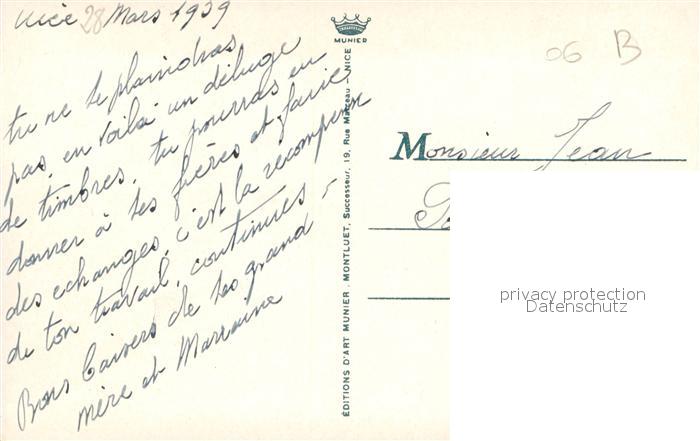 Nice 28 Mars 1939
tu ne te plaindras
pas, en voilà un déluge
de timbres, tu pourras en
donner à tes frères et faire
des echanges, c'est la récompense
de ton travail, continues -
Bons baisers de tes grand
mère et Marraine
MUNIER
ÉDITIONS D'ART MUNIER, MONTLUET, Successeur, 19, Rue Marceau - NICE
06 B
Monsieur Jean
privacy protection
Datenschutz